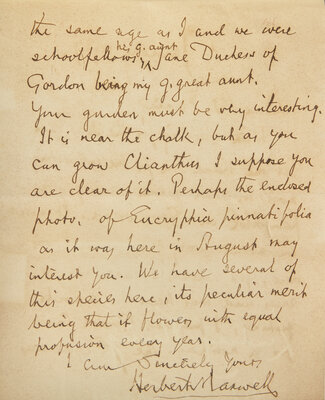 the same age as I and we were
schoolfellows, his g. aunt Jane Duchess of
Gordon being my g. great aunt.
Your garden must be very interesting.
It is near the chalk, but as you
can grow Clianthus I suppose you
are clear of it. Perhaps the enclosed
photo. of Eucryphia pinnatifolia
as it was here in August may
interest you. We have several of
this species here, its peculiar merit
being that it flowers with equal
profusion every year.
I am Sincerely Yours
Herbert Maxwell